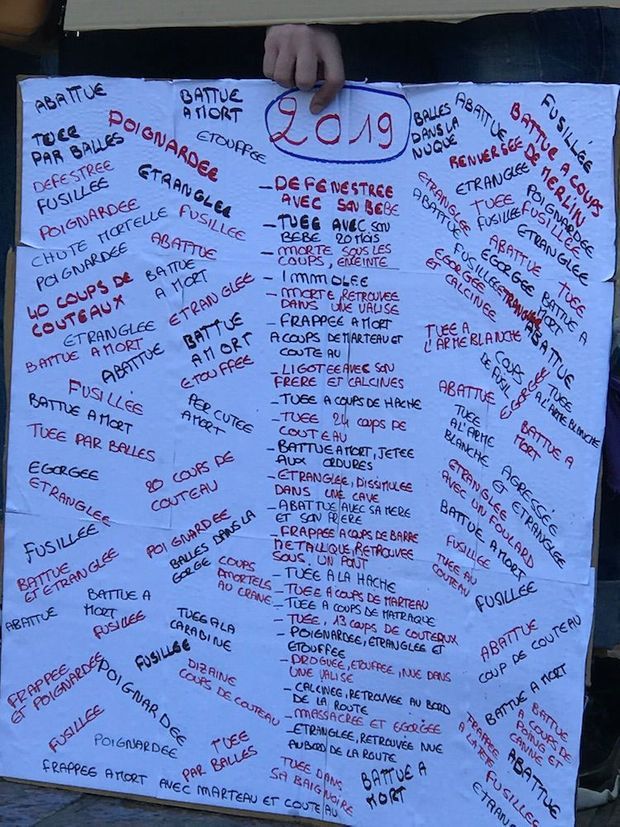 ABATTUE
BATTUE
A MORT
2019
BALLES
DANS LA
NUQUE
ABATTUE
FUSILLÉE
TUEE
PAR BALLES
POIGNARDEE
ETOUFFEE
RENVERSÉE
BATTUE A COUPS
DE MERLIN
DEFESTREE
FUSILLEE
ETRANGLEE
ETRANGLEE
ETRANGLEE
TUEE
FUSILLEE
POIGNARDEE
FUSILLEE
POIGNARDEE
FUSILLEE
ABATTUE
ETRANGLEE
CHUTE MORTELLE
POIGNARDEE
ABATTUE
FUSILLEE
EGORGEE
ABATTUE
40 COUPS DE
COUTEAUX
BATTUE
A MORT
ETRANGLEE
EGORGEE
ET CALCINEE
FUSILLEE
ETRANGLEE
BATTUE A
MORT
TUEE
ETRANGLEE
BATTUE A MORT
ABATTUE
BATTUE
A MORT
ETOUFFEE
TUEE A
L'ARME BLANCHE
ABATTUE
COUPS
DE FUSIL
EGORGEE
TUEE
A L'ARME BLANCHE
FUSILLÉE
BATTUE A MORT
PERCUTEE
A MORT
ABATTUE
TUEE
A L'ARME
BLANCHE
BATTUE A
MORT
TUEE PAR BALLES
EGORGEE
ETRANGLEE
20 COUPS DE
COUTEAU
ETRANGLEE
AVEC UN FOULARD
AGRESSÉE
ET ETRANGLEE
FUSILLÉE
POIGNARDEE
BALLES DANS LA
GORGE
BATTUE A MORT
BATTUE
ET ETRANGLEE
COUPS
MORTELS
AU CRANE
FUSILLEE
TUEE AU
COUTEAU
FUSILLÉE
ABATTUE
BATTUE A
MORT
FUSILLEE
TUEE A LA
CARABINE
ABATTUE
COUP DE COUTEAU
FRAPPEE
ET POIGNARDEE
FUSILLÉE
POIGNARDEE
DIZAINE
COUPS DE COUTEAU
BATTUE A MORT
FUSILLEE
POIGNARDEE
TUEE
PAR BALLES
FRAPPEE
A LA TETE
BATTUE
A COUPS DE
POING ET
CANNE
FRAPPEE A MORT AVEC MARTEAU ET COUTEAU
TUEE DANS
SA BAIGNOIRE
BATTUE A
MORT
ABATTUE
FUSILLEE
- DEFENESTREE
AVEC SON BEBE
- TUEE AVEC SON
BEBE 20 MOIS
- MORTE SOUS LES
COUPS, ENCEINTE
- IMMOLEE
- MORTE, RETROUVEE
DANS UNE VALISE
- FRAPPEE A MORT
A COUPS DE MARTEAU ET
COUTEAU
- LIGOTEE AVEC SON
FRERE ET CALCINES
- TUEE A COUPS DE HACHE
- TUEE 24 COUPS DE
COUTEAU
- BATTUE A MORT, JETEE
AUX ORDURES
- ETRANGLEE, DISSIMULEE
DANS UNE CAVE
- ABATTUE AVEC SA MERE
ET SON FRERE
- FRAPPEE A COUPS DE BARRE
METALLIQUE, RETROUVEE
SOUS UN PONT
- TUEE A LA HACHE
- TUEE A COUPS DE MARTEAU
- TUEE A COUPS DE MATRAQUE
- TUEE, 13 COUPS DE COUTEAUX
- POIGNARDEE, ETRANGLEE ET
ETOUFFEE
- DROGUEE, ETOUFFEE, NUE DANS
UNE VALISE
- CALCINEE, RETROUVEE AU BORD
DE LA ROUTE
- MASSACREE ET EGORGEE
- ETRANGLEE, RETROUVEE NUE
AU BORD DE LA ROUTE